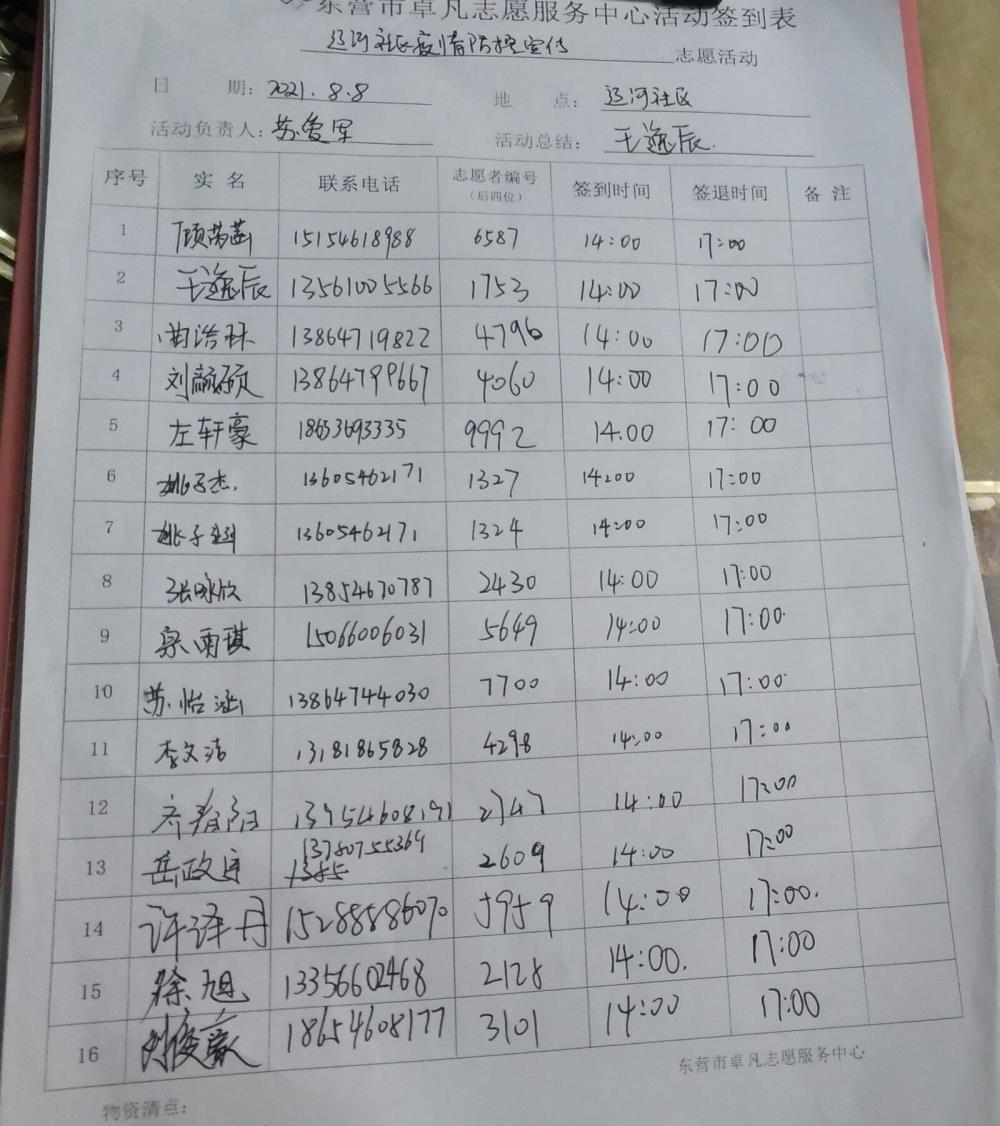 东营市卓凡志愿服务中心活动签到表
辽河社区疫情防控宣传 志愿活动
日 期: 2021.8.8 地 点: 辽河社区
活动负责人: 苏爱军 活动总结: 王逸辰.
序号 实 名 联系电话 志愿者编号 (后四位) 签到时间 签退时间 备 注
1 顾芮菡 15154618988 6587 14:00 17:00
2 王逸辰 13561005566 1753 14:00 17:00
3 曲浩林 13864719822 4796 14:00 17:00
4 刘颜硕 13864799667 4060 14:00 17:00
5 左轩豪 18653693335 9992 14.00 17:00
6 姚子杰. 13605462171 1327 14:00 17:00
7 姚子 13605462171 1324 14:00 17:00
8 张咏欣 13854670787 2430 14:00 17:00
9 宗雨琪 15066006031 5649 14:00 17:00.
10 苏怡涵 13864744030 7700 14:00 17:00.
11 李文洁 13181865828 4298 14:00 17:00
12 齐春阳 13954608191 2747 14:00 17:00
13 岳政 13780755369 2609 14:00 17:00
14 许译丹 15288886070 5959 14:00 17:00.
15 徐旭 13356602468 2128 14:00. 17:00
16 刘俊豪 18654608177 3101 14:00 17:00
东营市卓凡志愿服务中心
物资清点: